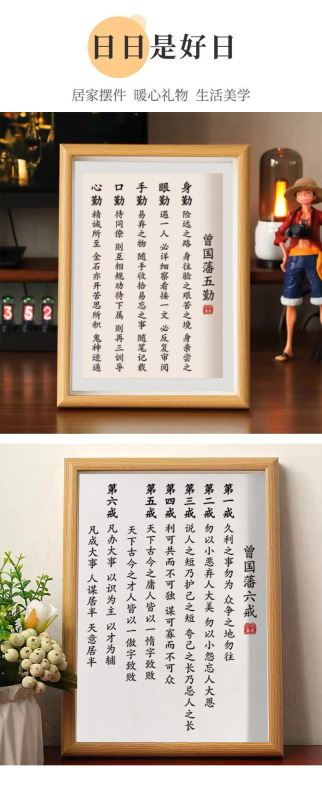 日日是好日
居家摆件 暖心礼物 生活美学
曾国藩五勤
身勤 险远之路 身往验之 艰苦之境 身亲尝之
眼勤 遇一人 必详细察看 接一文 必反复审阅
手勤 易弃之物 随手收拾 易忘之事 随笔记载
口勤 待同僚 则互相规劝 待下属 则再三训导
心勤 精诚所至 金石亦开 苦思所积 鬼神迹通
352
曾国藩六戒
第一戒 久利之事勿为 众争之地勿往
第二戒 勿以小恶弃人大美 勿以小怨忘人大恩
第三戒 说人之短乃护己之短 夸己之长乃忌人之长
第四戒 利可共而不可独 谋可寡而不可众
第五戒 天下古今之庸人皆以一惰字致败
天下古今之才人皆以一傲字致败
第六戒 凡办大事 以识为主 以才为辅
凡成大事 人谋居半 天意居半